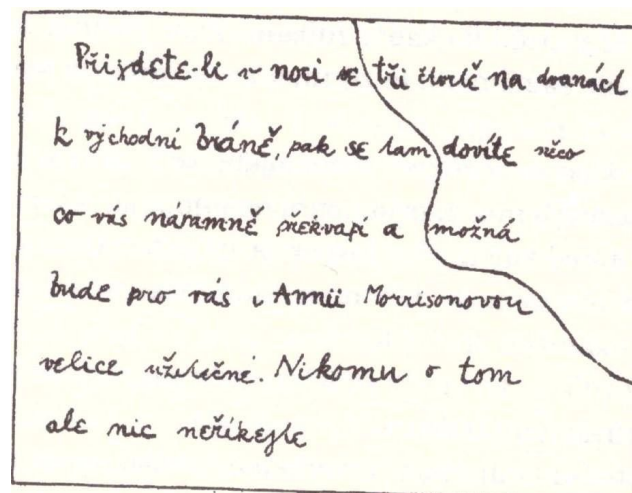 Přijdete-li v noci ve tři čtvrtě na dvanáct
k východní bráně, pak se tam dovíte něco
co vás náramně překvapí a možná
bude pro vás i Annii Morrisonovou
velice užitečné. Nikomu o tom
ale nic neříkejte